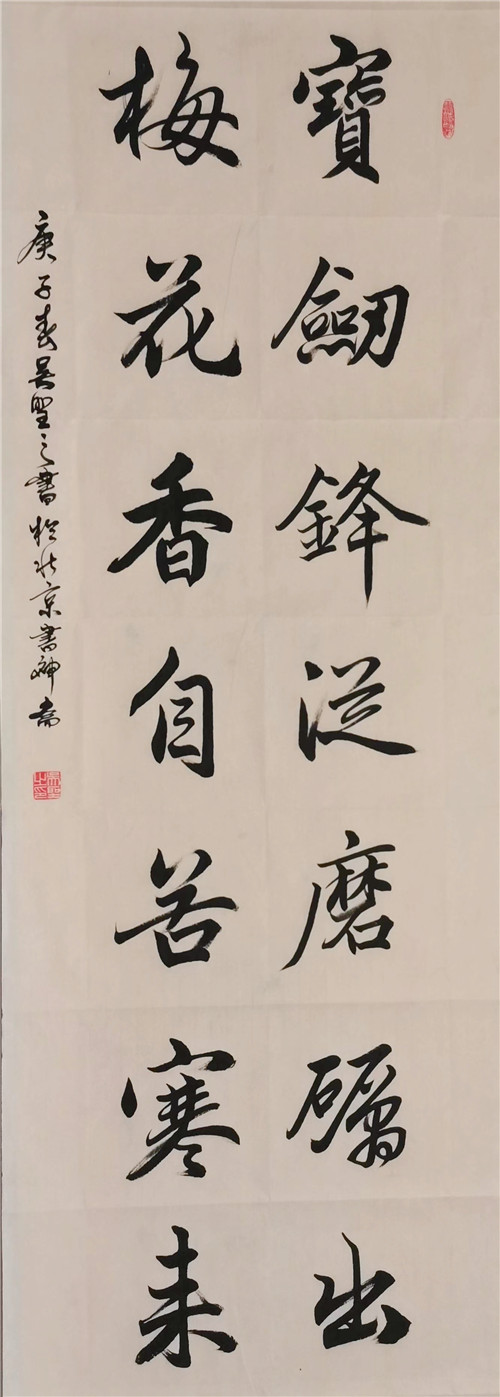 寶劒鋒從磨礪出
梅花香自苦寒來
庚子春吴聖之書於北京書神斋